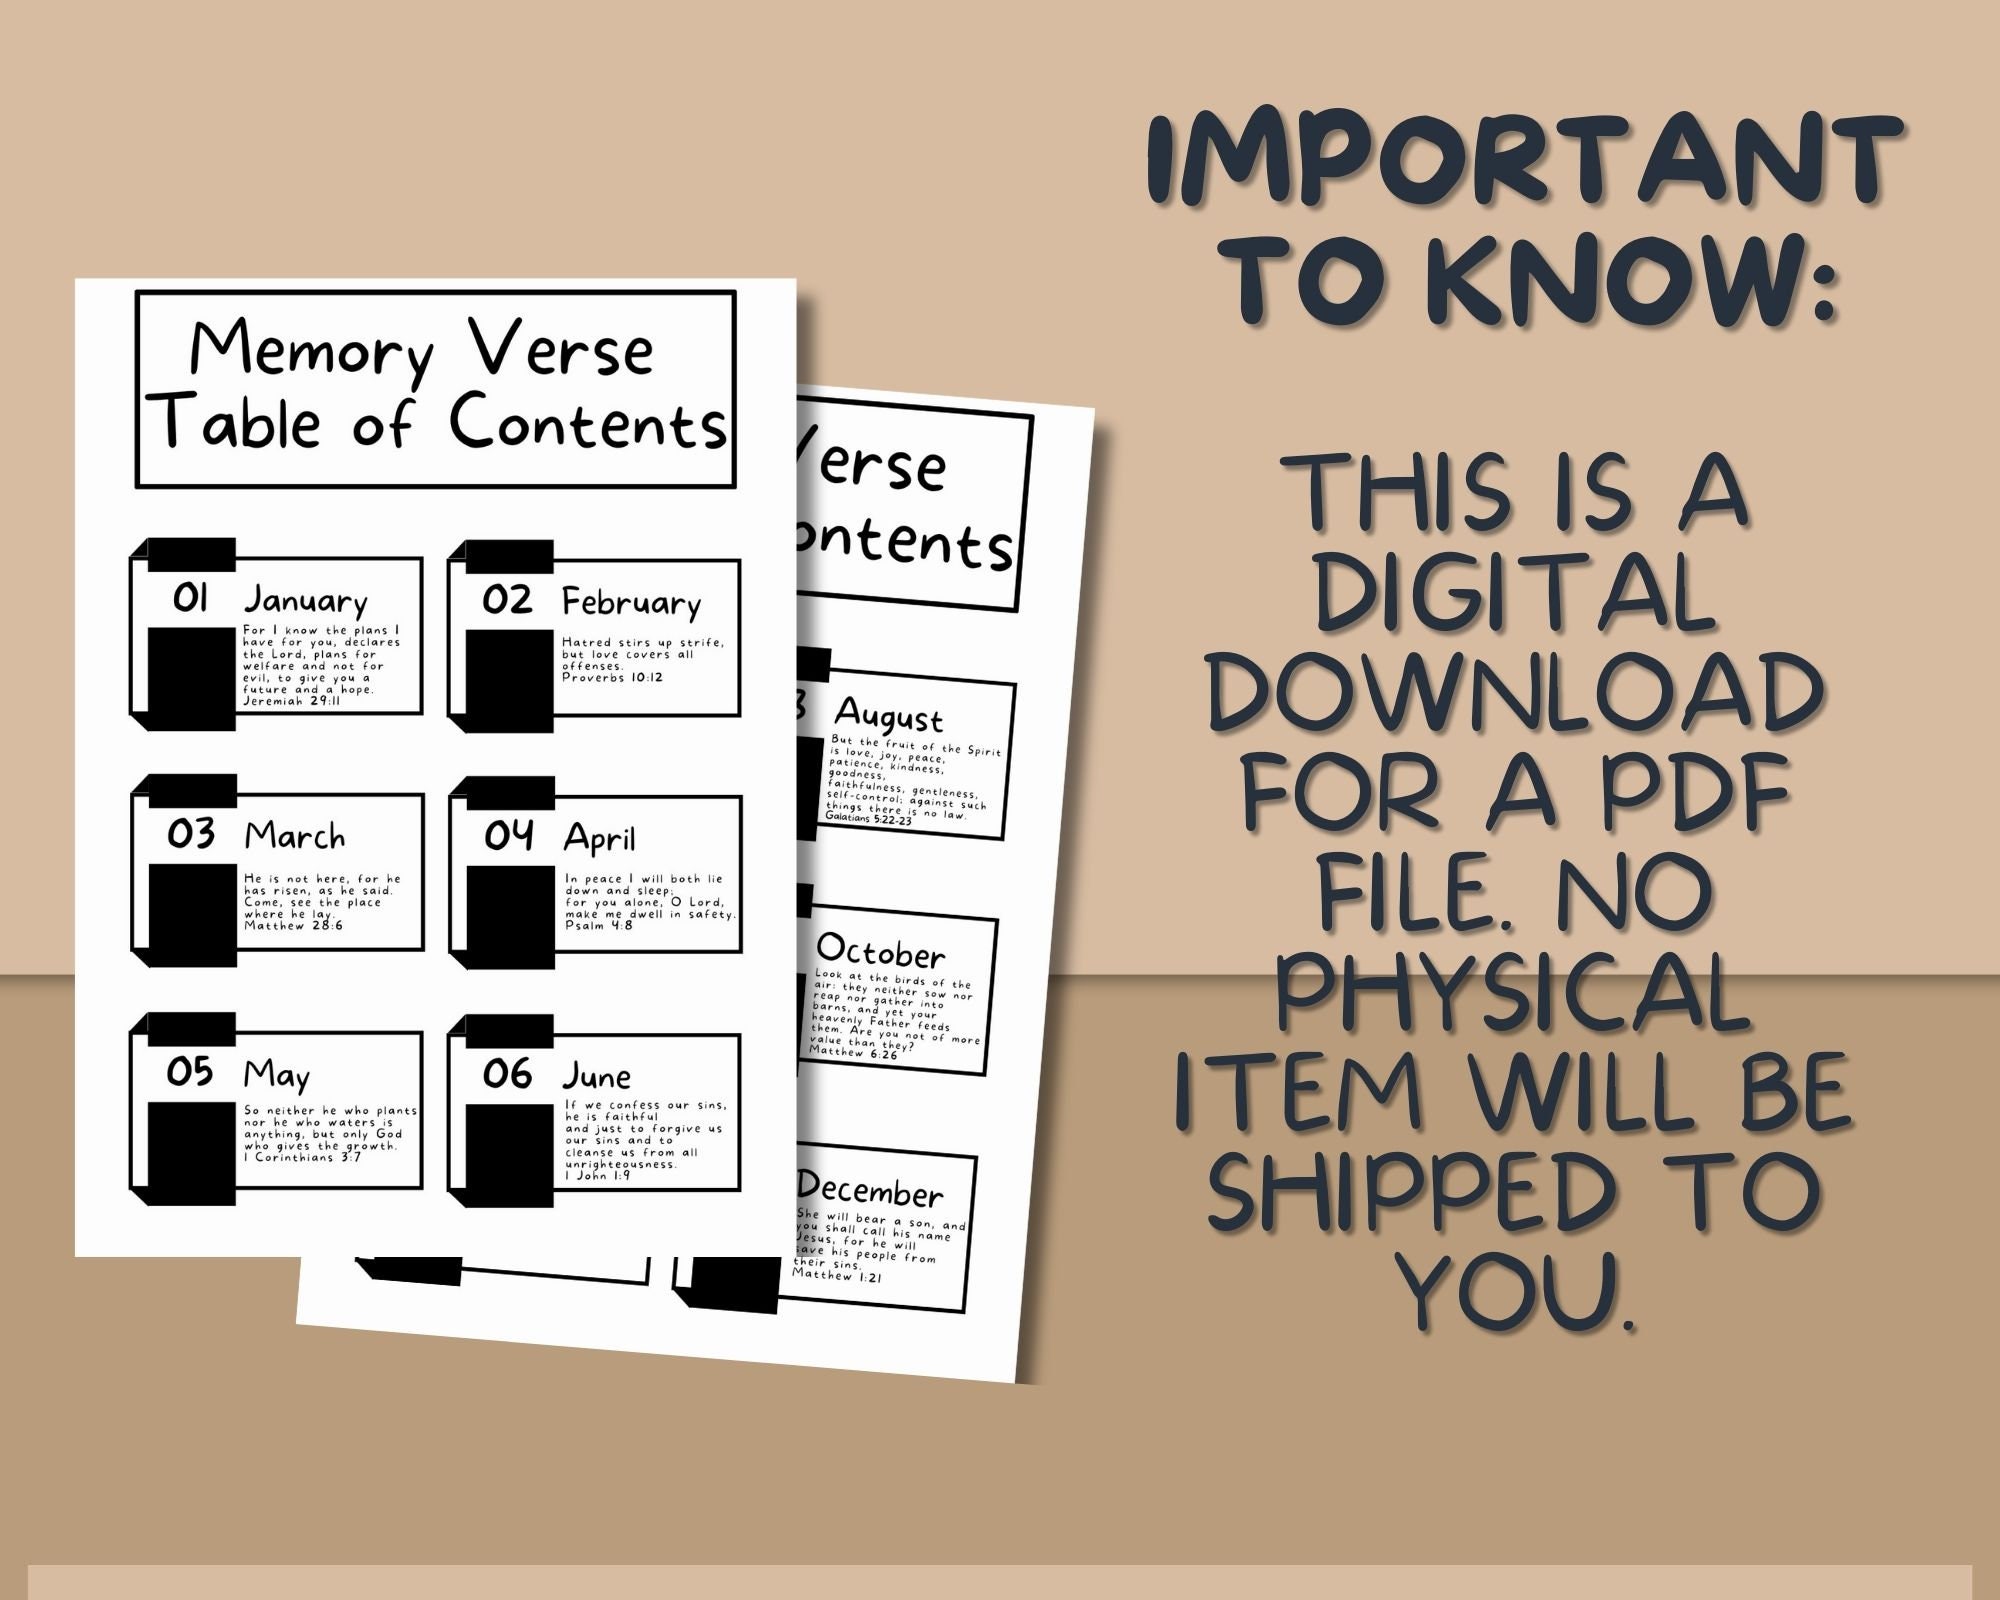 IMPORTANT
TO KNOW:
THIS IS A
DIGITAL
DOWNLOAD
FOR A PDF
FILE. NO
PHYSICAL
ITEM WILL BE
SHIPPED TO
YOU.
Memory Verse
Table of Contents
01 January
For I know the plans I
have for you, declares
the Lord, plans for
welfare and not for
evil, to give you a
future and a hope.
Jeremiah 29:11
02 February
Hatred stirs up strife,
but love covers all
offenses.
Proverbs 10:12
03 March
He is not here, for he
has risen, as he said.
Come, see the place
where he lay.
Matthew 28:6
04 April
In peace I will both lie
down and sleep;
for you alone, O Lord,
make me dwell in safety.
Psalm 4:8
05 May
So neither he who plants
nor he who waters is
anything, but only God
who gives the growth.
1 Corinthians 3:7
06 June
If we confess our sins,
he is faithful
and just to forgive us
our sins and to
cleanse us from all
unrighteousness.
1 John 1:9
Verse
ontents
August
But the fruit of the Spirit
is love, joy, peace,
patience, kindness,
goodness,
faithfulness, gentleness,
self-control; against such
things there is no law.
Galatians 5:22-23
October
Look at the birds of the
air: they neither sow nor
reap nor gather into
barns, and yet your
heavenly Father feeds
them. Are you not of more
value than they?
Matthew 6:26
December
She will bear a son, and
you shall call his name
Jesus, for he will
save his people from
their sins.
Matthew 1:21